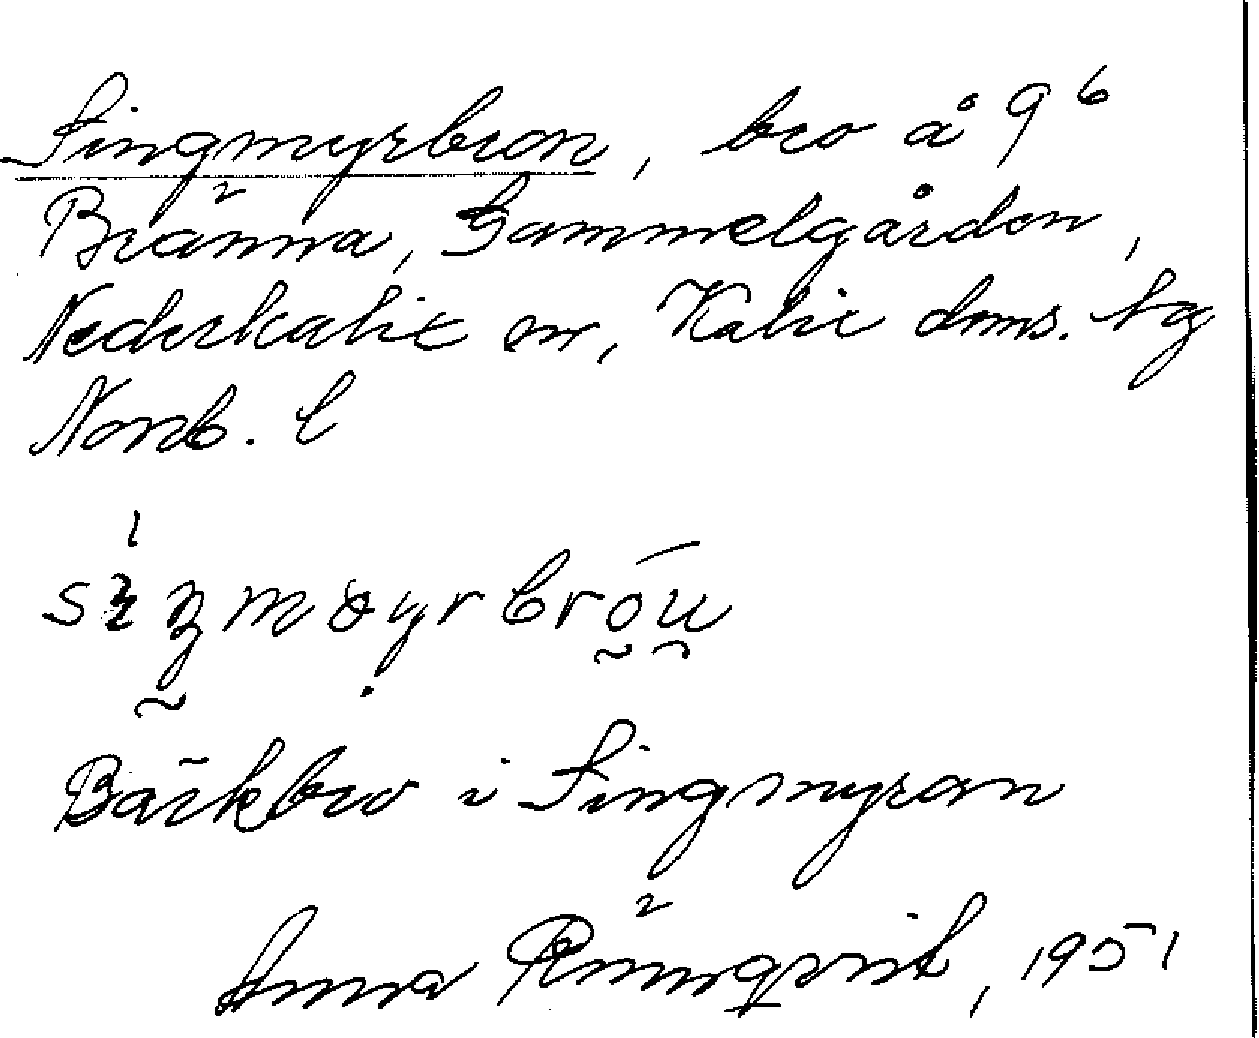 Singmyrbron, bro å 9⁶
Bränna, Gammelgården,
Nederkalix sn, Kalix doms. tg
Norrb. l
Bäckbro i Singmyran
Anna Rönnqvist, 1951